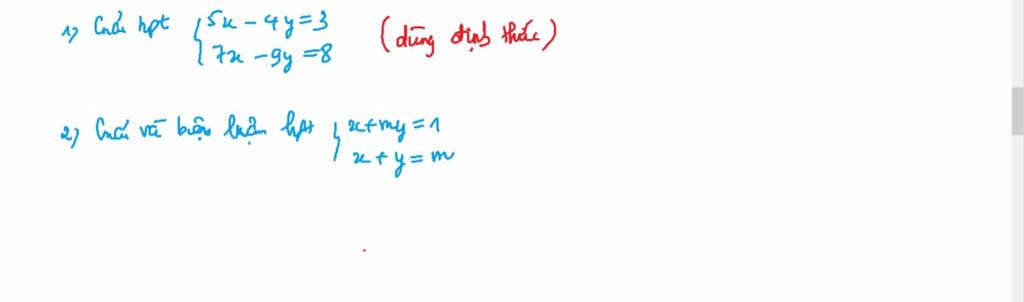 1) Giải hpt { 5x - 4y = 3 (dùng định thức)
7x - 9y = 8
2) Giải và biện luận hpt { x + my = 1
x + y = m